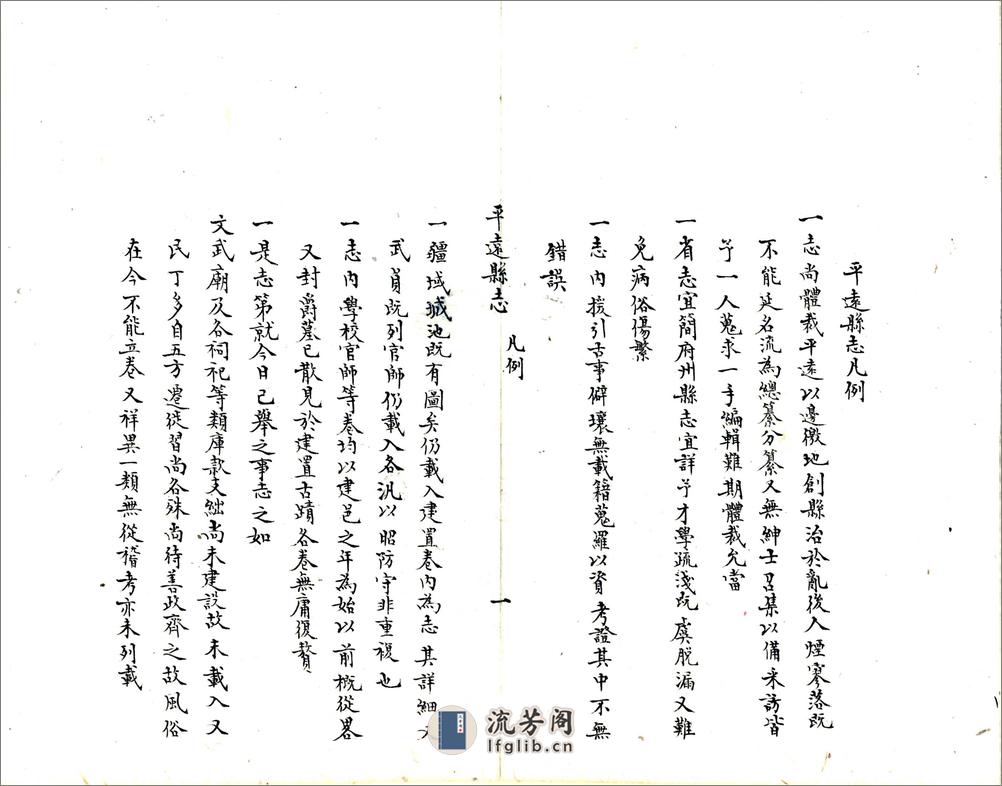 平遠縣志凡例
一志尚體裁平遠以邊徼地創縣治於亂後人煙寥落既
不能延名流為總纂分纂又無紳士召集以備采訪皆
予一人蒐求一手編輯難期體裁允當
一省志宜簡府州縣志宜詳予才學疏淺既虞脱漏又難
免病俗傷繁
一志內援引古事僻壤無載籍蒐羅以資考證其中不無
錯誤
平遠縣志
凡例
一
一疆域城池既有圖矣仍載入建置卷內為志其詳細
武員既列官師仍載入各汛以昭防守非重複也
一志內學校官師等卷均以建邑之年為始以前概從畧
又封爵墓已散見於建置古蹟各卷無庸復贅
一是志第就今日已舉之事志之如
文武廟及各祠祀等類庫款支絀尚未建設故未載入又
民丁多自五方遷徙習尚各殊尚待善政齊之故風俗
在今不能立卷又祥異一類無從稽考亦未列載
流芳阁
lfglib.cn